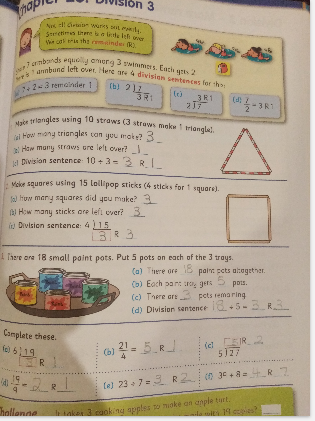 Chapter 20: Division 3
Not all division works out evenly.
Sometimes there is a little left over.
We call this the remainder (R).
7 armbonds equally among 3 swimmers. Each gets 2
is 1 armband left over. Here are 4 division sentences for this:
7 ÷ 2 = 3 remainder 1
(b) 2 7
3 R 1
(c) 3 R 1
2 7
(d) 7/2 = 3 R 1
Make triangles using 10 straws (3 straws make 1 triangle).
(a) How many triangles can you make? 3
(b) How many straws are left over? 1
(c) Division sentence: 10 ÷ 3 = 3 R 1
Make squares using 15 lollipop sticks (4 sticks for 1 square).
(a) How many squares did you make? 3
(b) How many sticks are left over? 3
(c) Division sentence: 4 15
3 R 3
There are 18 small paint pots. Put 5 pots on each of the 3 trays.
(a) There are 18 paint pots altogether.
(b) Each paint tray gets 5 pots.
(c) There are 3 pots remaining.
(d) Division sentence: 18 ÷ 5 = 3 R 3
Complete these.
(a) 6 19
3 R 1
(b) 21/4 = 5 R 1
(c) 5 R 2
5 27
(d) 19/9 = 2 R 1
(e) 23 ÷ 7 = 3 R 2
(f) 30 ÷ 8 = 4 R
Challenge
It takes 3 cooking apples to make an apple tart.
with 19 apples?